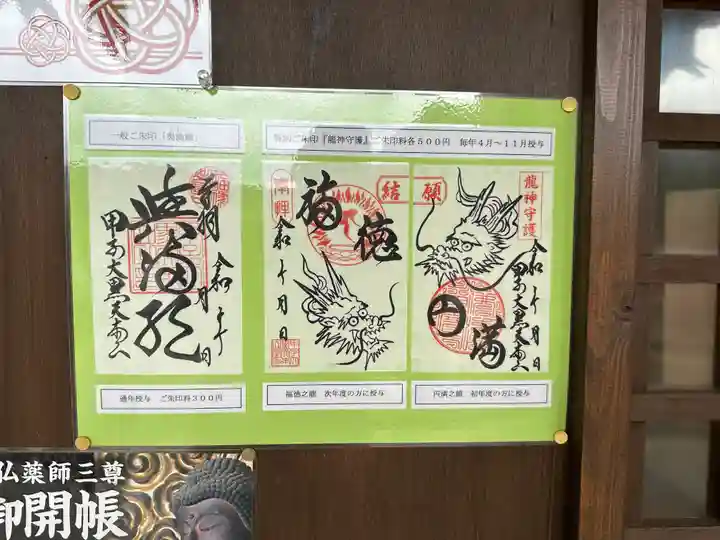 一般ご朱印「與満願」
特別ご朱印『龍神守護』ご朱印料各５００円　毎年４月～１１月授与
奉拝
令和　年　月　日
甲子大黒天本山
福徳
結
令和　年　月　日
願
龍神守護
円満
令和　年　月　日
甲子大黒天本山
通年授与　ご朱印料３００円
福徳之龍　次年度の方に授与
円満之龍　初年度の方に授与
仏薬師三尊
御開帳